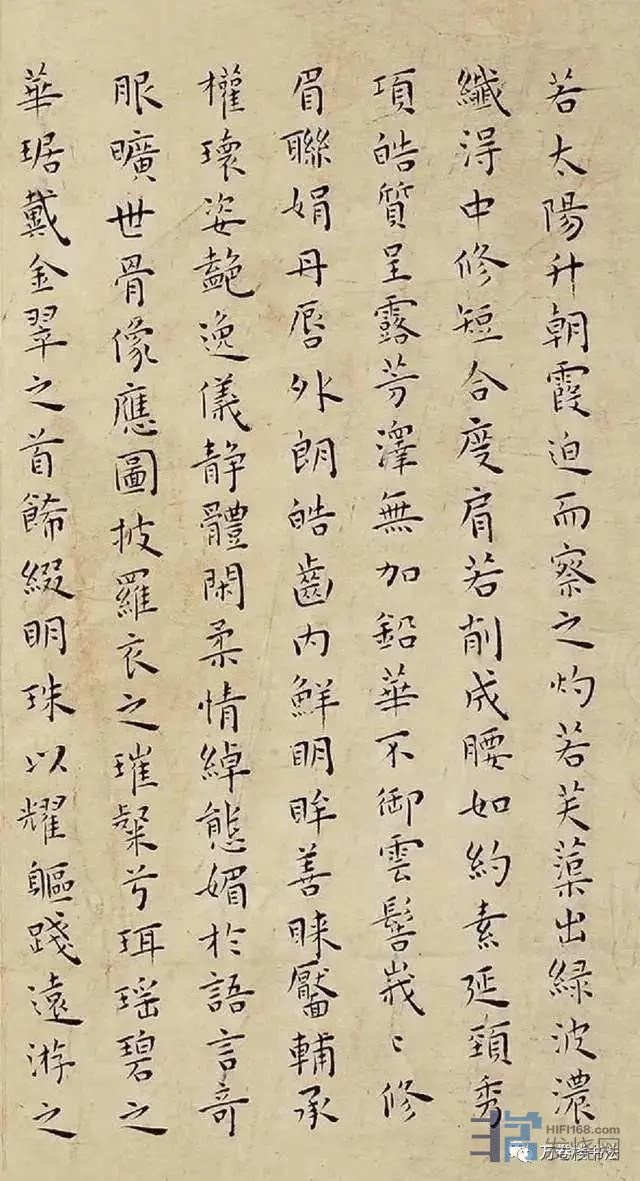 若太陽升朝霞迫而察之灼若芙蕖出綠波濃
纖淂中修短合度肩若削成腰如約素延頸秀
項皓質呈露芳澤無加鉛華不御雲髻峩〻修
眉聯娟丹唇外朗皓齒內鮮明眸善睐靨輔承
權瓌姿艶逸儀静體閑柔情綽態媚於語言奇
服曠世骨像應圖披羅衣之璀粲兮珥瑶碧之
華琚戴金翠之首餙綴明珠以耀軀踐遠游之
HIFI168.com
发烧网
万卷楼书法